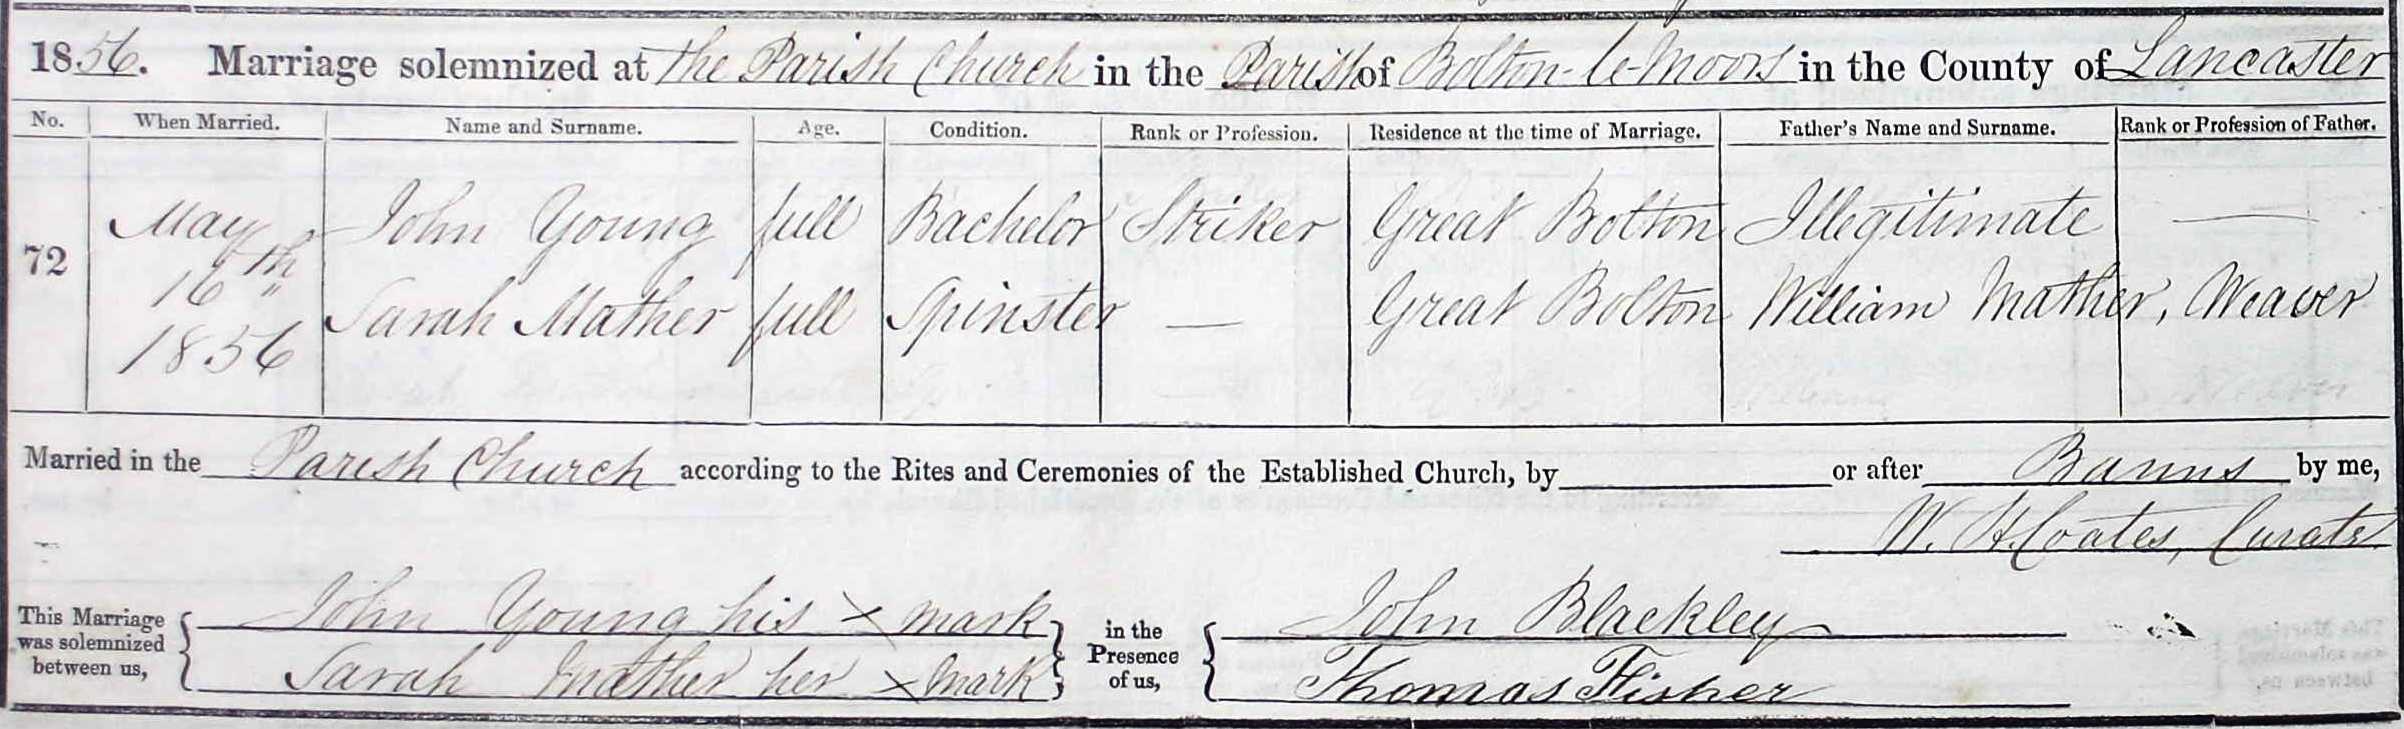 1856. Marriage solemnized at the Parish Church in the Parish of Bolton-le-Moors in the County of Lancaster
No. When Married. Name and Surname. Age. Condition. Rank or Profession. Residence at the time of Marriage. Father's Name and Surname. Rank or Profession of Father.
72 May 16th 1856 John Young full Bachelor Striker Great Bolton Illegitimate —
Sarah Mather full Spinster — Great Bolton William Mather, Weaver
Married in the Parish Church according to the Rites and Ceremonies of the Established Church, by or after Banns by me,
W. H. Coates, Curate
This Marriage was solemnized between us, John Young his × mark in the Presence of us, John Blackley
Sarah Mather her × mark Thomas Fisher